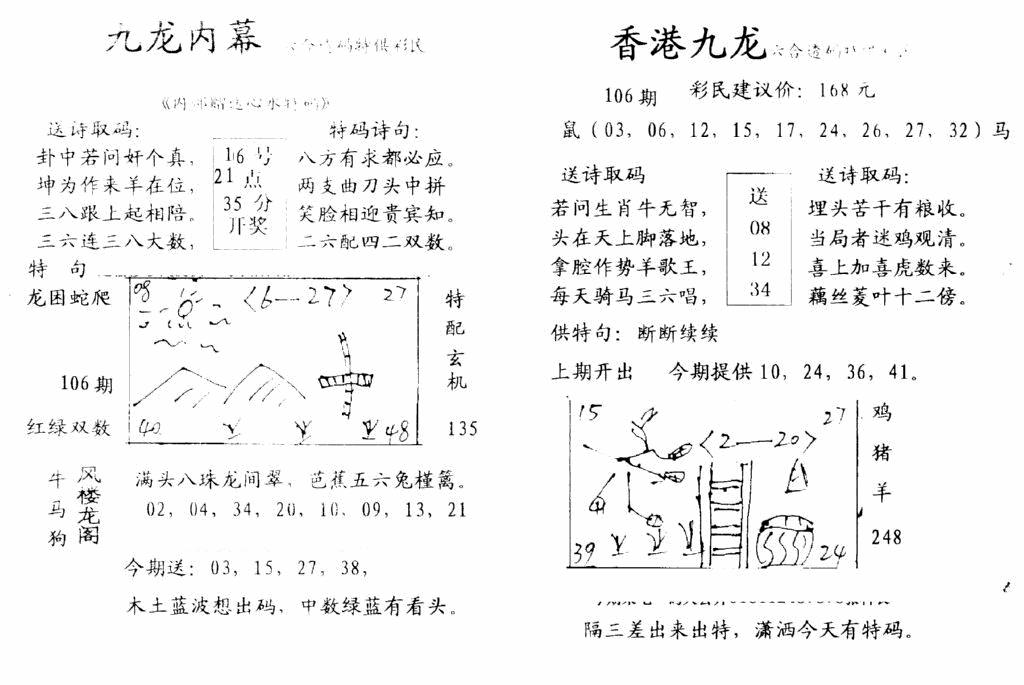 九龙内幕
送诗取码：
卦中若问奸个真，
坤为作来羊在位，
三八跟上起相陪。
三六连三八大数，
16 号
21 点
35 分
开奖
特码诗句：
八方有求都必应。
两支曲刀头中拼
笑脸相迎贵宾知。
二六配四二双数。
特 句
龙困蛇爬
106 期
红绿双数
08
〈6—27〉
27
40
48
特配玄机
135
牛马狗
风楼龙阁
满头八珠龙间翠，芭蕉五六兔槿篱。
02，04，34，20，10，09，13，21
今期送：03，15，27，38，
木土蓝波想出码，中数绿蓝有看头。
香港九龙
六合透码
106 期
彩民建议价：168 元
鼠（03，06，12，15，17，24，26，27，32）马
送诗取码
若问生肖牛无智，
头在天上脚落地，
拿腔作势羊歌王，
每天骑马三六唱，
送
08
12
34
送诗取码：
埋头苦干有粮收。
当局者迷鸡观清。
喜上加喜虎数来。
藕丝菱叶十二傍。
供特句：断断续续
上期开出 今期提供 10，24，36，41。
15
〈2—20〉
27
39
24
鸡
猪
羊
248
隔三差出来出特，潇洒今天有特码。